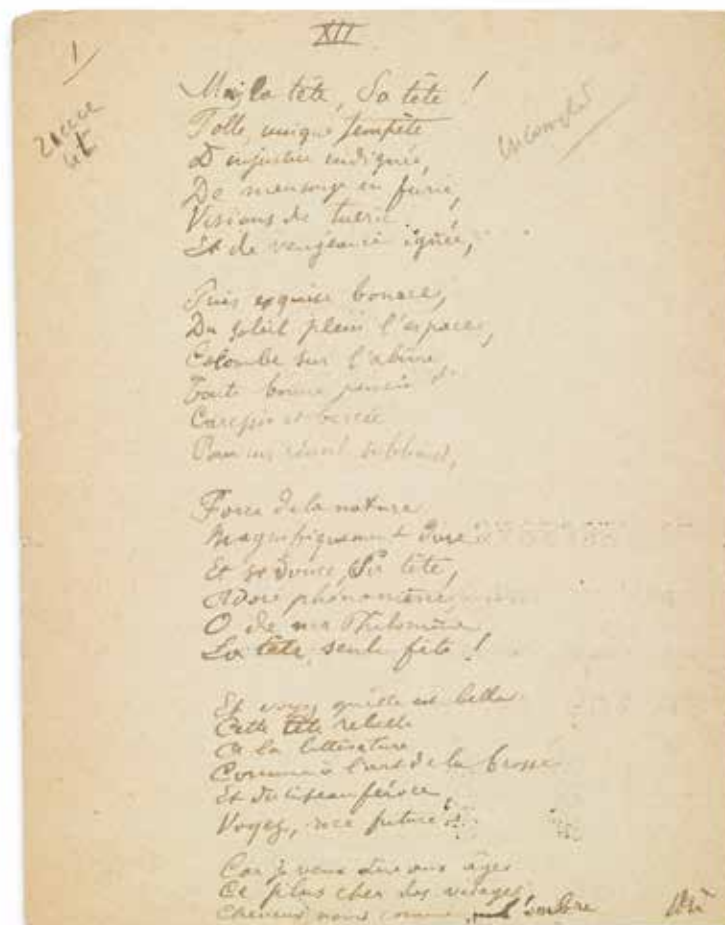 XII
1
Mais la tête, Sa tête !
Folle, unique tempête
D'injustice indignée,
De mensonge en furie,
Visions de tuerie
Et de vengeance ignée,
incomplet
Puis exquise bonace,
Du soleil plein l'espace,
Colombe sur l'abîme
Toute bonne pensée
Caressée et bercée
Pour un réveil sublime,
Force de la nature
Magnifiquement dure
Et si douce, Sa tête,
Adoré phénomène
O de ma Philomène
La tête, seule fête !
Et voyez qu'elle est belle
Cette tête rebelle
A la littérature
Comme à l'art de la brosse
Et du ciseau féroce
Voyez, race future !
Car je veux dire aux âges
Ce plus cher des visages
Cheveux noirs comme l'ombre